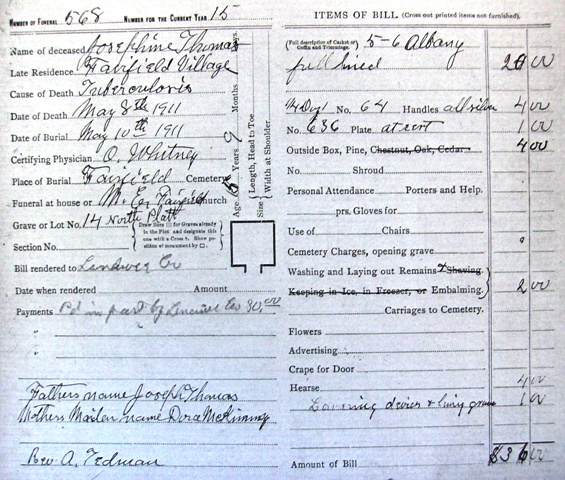 NUMBER OF FUNERAL 568 NUMBER FOR THE CURRENT YEAR 15
Name of deceased Josephine Thomas
Late Residence Fairfield Village
Cause of Death Tuberculosis
Date of Death May 8th 1911
Date of Burial May 10th 1911
Certifying Physician O. Whitney
Place of Burial Fairfield Cemetery
Funeral at house or M. E. Fairfield Church
Grave or Lot No. 14 North Platt
Draw lines for Graves already in the Plot and designate this one with a Cross †. Show position of monument by □.
Section No.
Age, 5 Years 9 Months Days.
Size { Length, Head to Toe. Width at Shoulder.
Bill rendered to Lenawee Co
Date when rendered Amount
Payments Pd in part by Lenawee Co 30.00
"
"
Fathers name Joseph Thomas
Mothers Maiden name Dora McKinney
Rev A. Tedman
ITEMS OF BILL (Cross out printed items not furnished).
(Full description of Casket or Coffin and Trimmings). 5-6 Albany
full lined 20 00
No. 64 Handles all silver 4 00
No. 636 Plate at rest 1 00
Outside Box, Pine, Chestnut, Oak, Cedar 4 00
No. Shroud
Personal Attendance Porters and Help.
prs. Gloves for
Use of Chairs
Cemetery Charges, opening grave
Washing and Laying out Remains & Shaving
Keeping in Ice, in Freezer, or Embalming. 2 00
Carriages to Cemetery.
Flowers
Advertising
Crape for Door
Hearse 4 00
Lowering device & lining grave 1 00
Amount of Bill $36 00